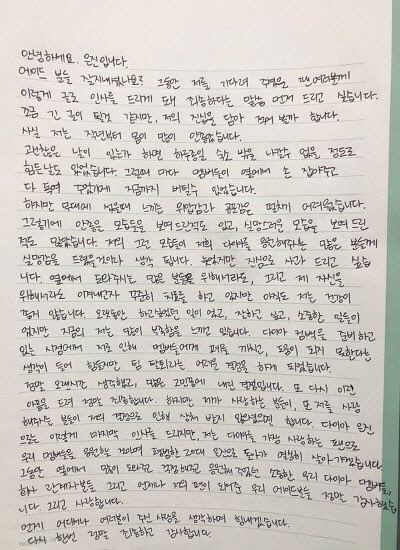 안녕하세요. 은진입니다.
에이드 분들 잘지내셨나요? 그동안 저를 기다려 주셨을 팬 여러분께
이렇게 글로 인사를 드리게 돼 죄송하다는 말씀 먼저 드리고 싶습니다.
조금 긴 글이 될것 같지만, 저의 진심을 담아 적어 볼까 합니다.
사실 저는, 작년부터 몸이 많이 안좋았습니다.
괜찮은 날이 있는가 하면 하루종일 숙소 밖을 나갈수 없을 정도로
힘든 날도 있었습니다. 그럴때 마다 멤버들이 옆에서 손 잡아주고
다 독여 주었기에 지금까지 버틸수 있었습니다.
하지만 무대에 섰을때 느끼는 위압감과 공포감은 떨치기 어려웠습니다.
그렇기에 안좋은 모습들을 보여드린적도 있고, 실망스러운 모습을 보여 드린
적도 많았습니다. 저의 그런 모습이 저희 다이아를 응원해주는 많은 분들께
실망감을 드렸을거이라 생각 됩니다. 늦었지만 진심으로 사과 드리고 싶습
니다. 옆에서 도와주시는 많은 분들을 위해서라도, 그리고 제 자신을
위해서라도 이겨내고자 꾸준히 치료를 하고 있지만 아직도 저는 건강이
좋지 않습니다. 오랫동안 하고싶었던 일이 었고, 잘하고 싶고, 소중한 일들이
었지만 지금의 저는 많이 부족함을 느끼고 있습니다. 다이아 컴백을 준비 하고
있는 시점에서 저로 인해 멤버들에게 폐를 끼치고, 도움이 되지 못한다는
생각이 들어 힘들지만 팀 탈퇴라는 어려운 결정을 하게 되었습니다.
정말 오래시간 생각했고, 많은 고민끝에 내린 결정입니다. 또 다시 이런
아픔을 드려 정말 죄송합니다. 하지만 제가 사랑하는 분들이, 또 저를 사랑
해주시는 분들이 저의 결정으로 인해 상처 받지 않았으면 합니다. 다이아 은진
으로는 이렇게 마지막 인사를 드리지만, 저는 다이아를 가장 사랑하는 팬으로
우리 멤버들을 응원할 것이며 평범한 20대 은진으로 돌아가 열심히 살아가겠습니다.
그동안 옆에서 많이 도와주고 걱정해주고 응원해 주었던 소중한 우리 다이아 멤버들과
회사 관계자분들 그리고 언제나 저의 편이 되어준 우리 에이드분들 정말 감사했습
니다. 그리고 사랑합니다.
언제 어디에서나 여러분이 주신 사랑을 생각하며 힘내겠습니다.
다시 한번 정말 죄송하고 감사합니다.